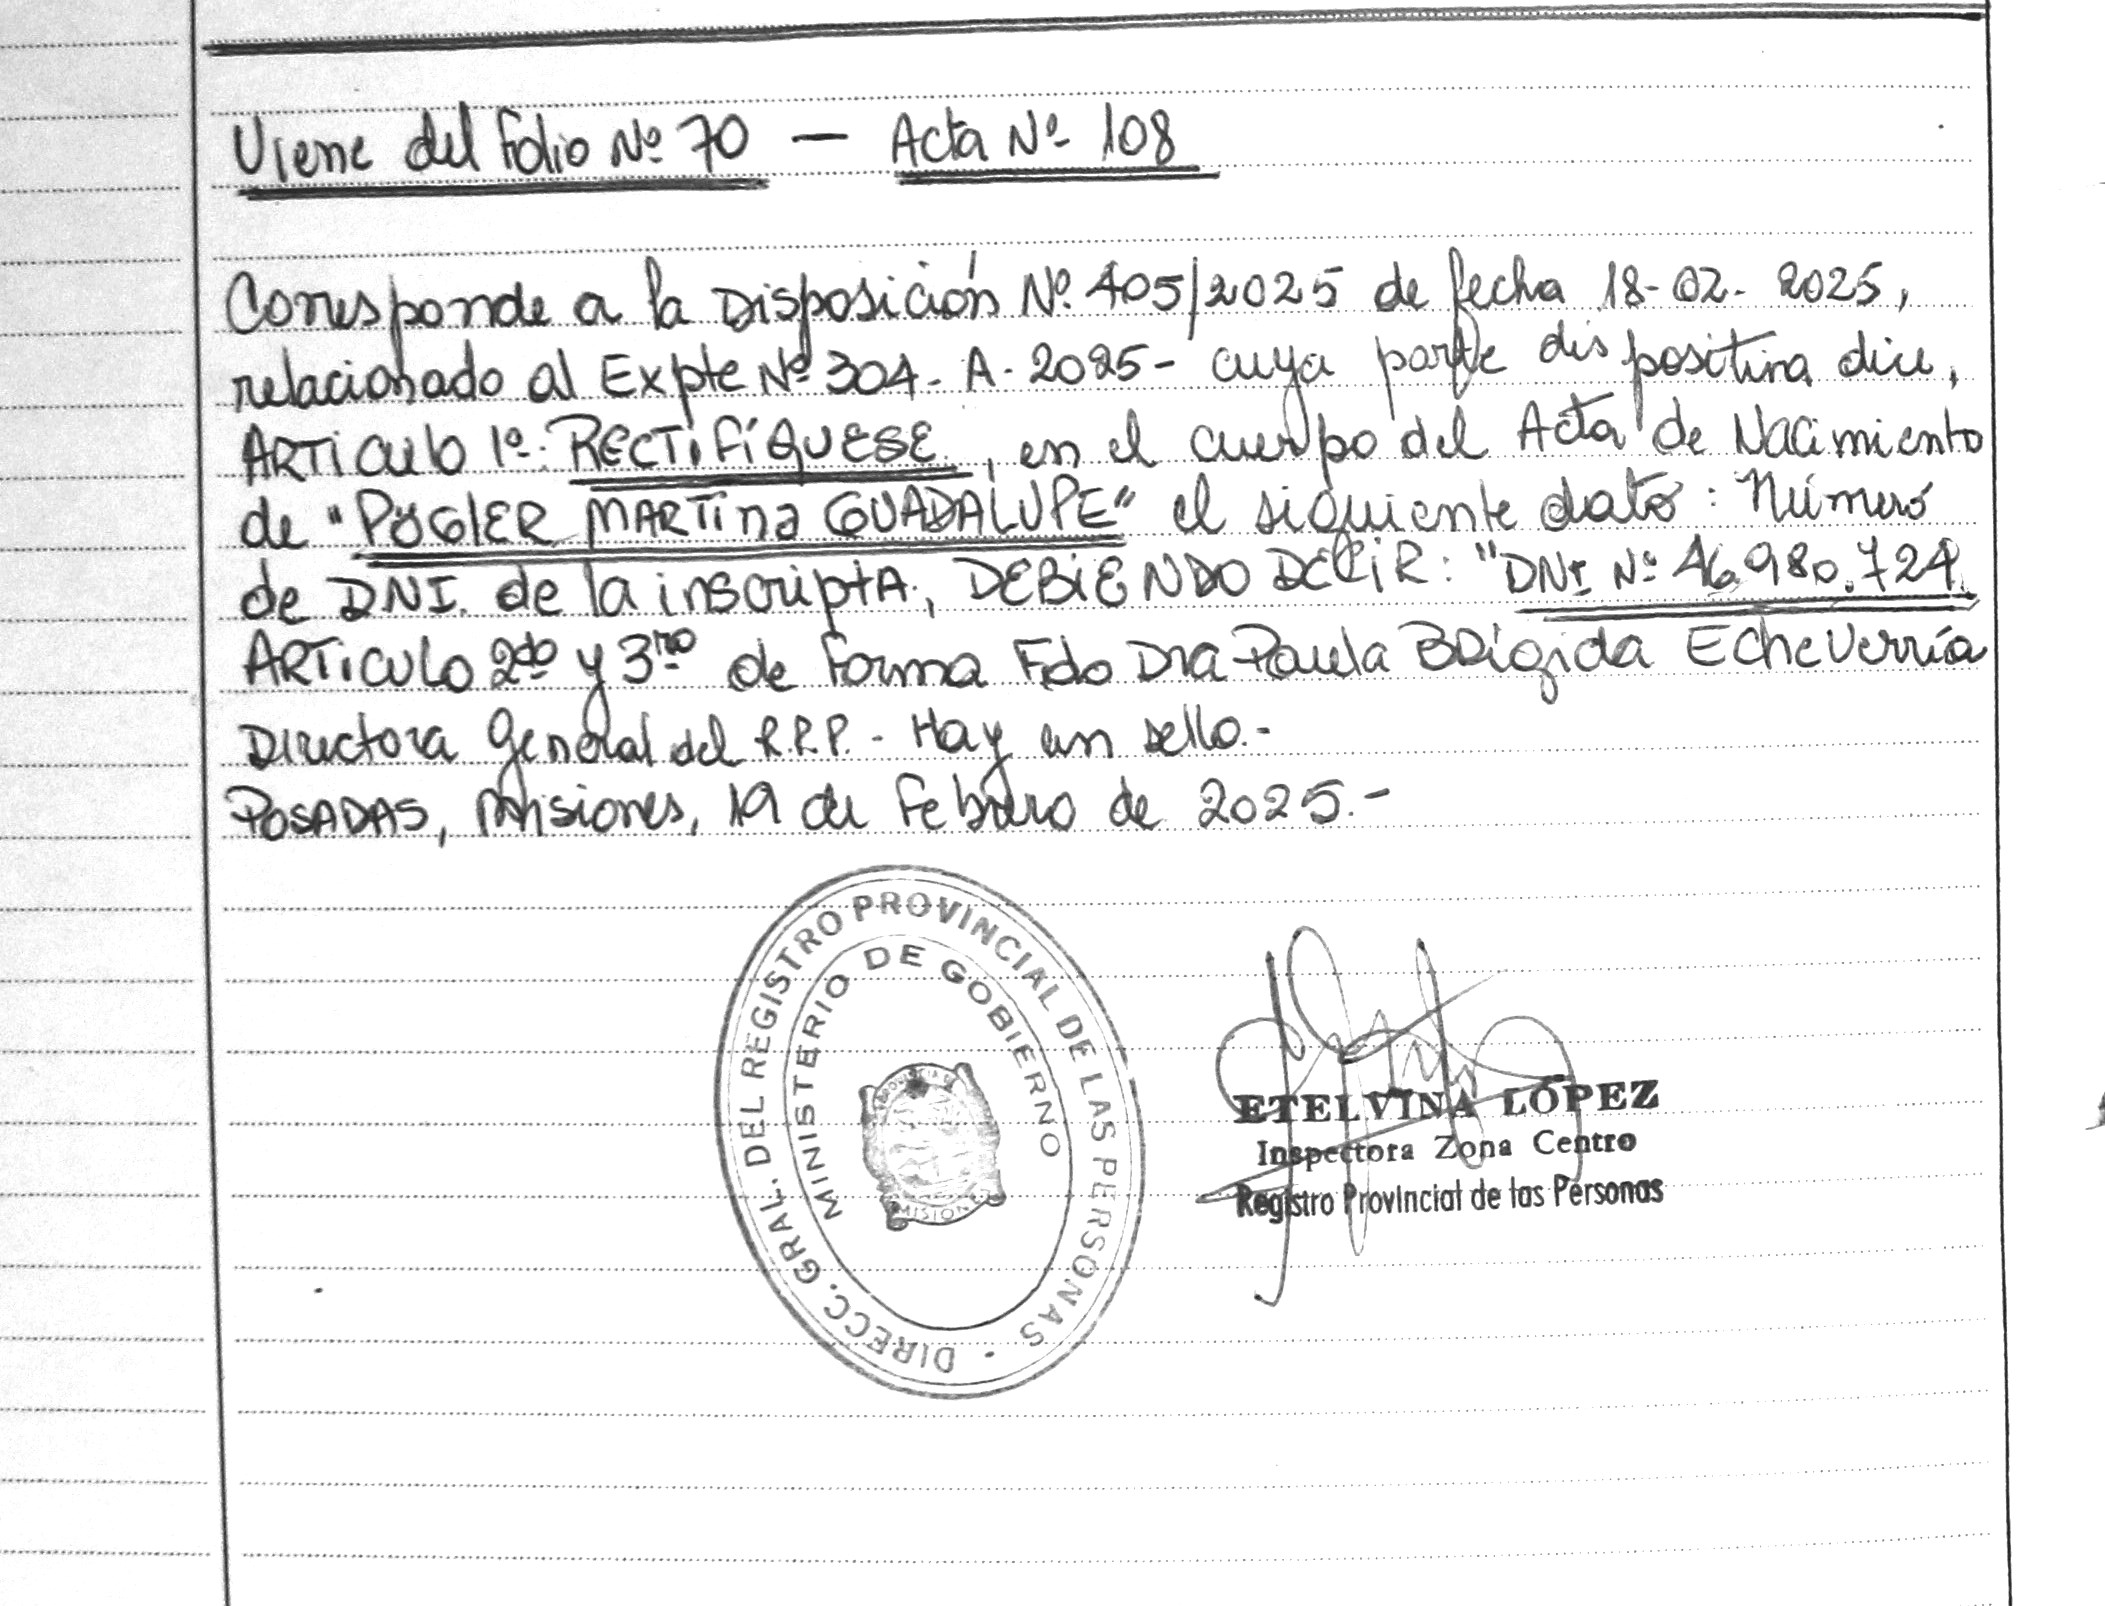 Viene del Folio Nº 70 — Acta Nº 108
Corresponde a la Disposición Nº 405/2025 de fecha 18-02-2025,
relacionado al Expte Nº 304-A-2025- cuya parte dispositiva dice,
ARTICULO 1º: RECTIFÍQUESE, en el cuerpo del Acta de Nacimiento
de "POGLER MARTINA GUADALUPE" el siguiente dato: Número
de DNI. de la inscriptA, DEBIENDO DECIR: "DNI Nº 46.980.724.
ARTICULO 2do y 3ro de Forma Fdo Dra Paula BRígida Echeverría
Directora General del R.R.P.- Hay un sello.-
POSADAS, Misiones, 19 de Febrero de 2025.-
DIRECC. GRAL. DEL REGISTRO PROVINCIAL DE LAS PERSONAS
MINISTERIO DE GOBIERNO
PROVINCIA DE
MISIONES
ETELVINA LÓPEZ
Inspectora Zona Centro
Registro Provincial de las Personas